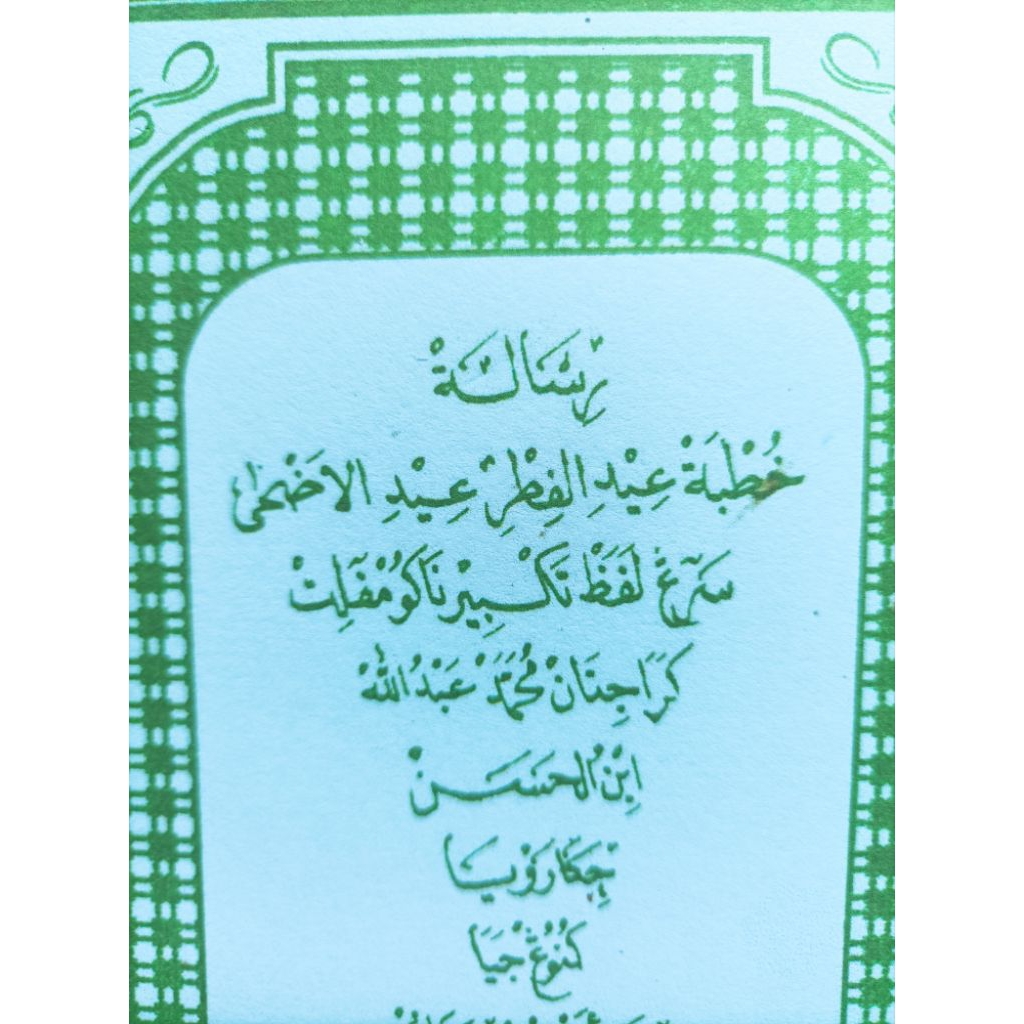 رِسَالَةْ
خُطْبَةْ عِيْدِ الفِطْرِ عِيْدِ الاَضْحٰى
سَرَڠْ لَفَظْ تَكْبِيْرنَا كُومْڤلِتْ
كَرَاجِنَانْ مُحَمَّدْ عَبْدُ اللّٰهْ
ابْنُ الْحَسَنْ
چِكَارَوْيَا
كُنُوڠْ جَيَا